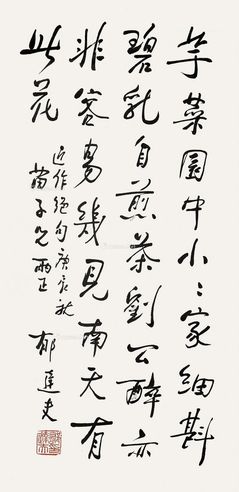 芋菜園中小〻家細斟
碧乳自煎茶劉公醉亦
非容易幾見南天有
此花
近作絕句庚辰秋
苗子兄兩正
郁達夫